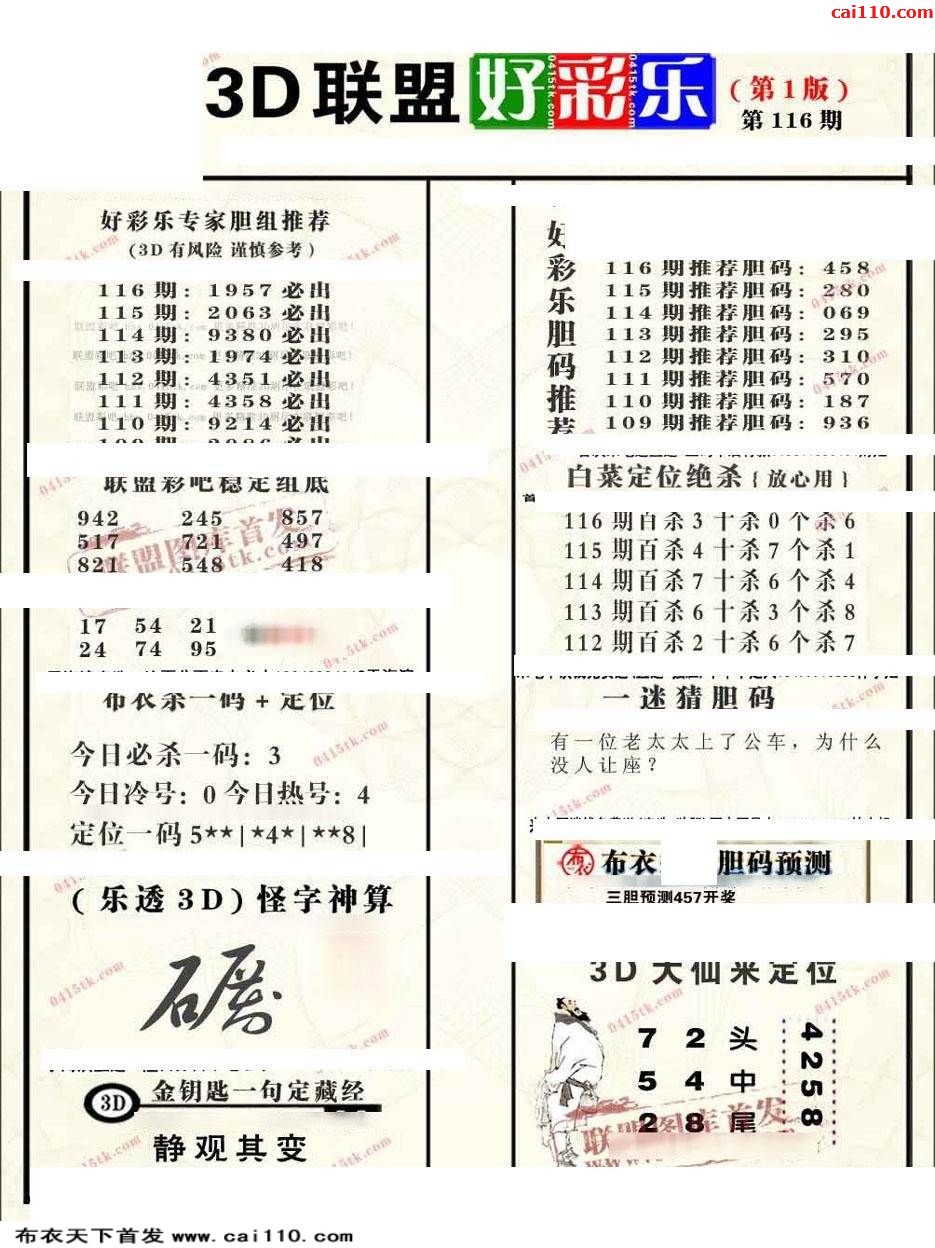 cai110.com
3D联盟 好彩乐 (第1版)
第116期
好彩乐专家胆组推荐
(3D有风险 谨慎参考)
116期: 1957必出
115期: 2063必出
114期: 9380必出
113期: 1974必出
112期: 4351必出
111期: 4358必出
110期: 9214必出
联盟彩吧稳定组底
942 245 857
517 721 497
821 548 418
17 54 21
24 74 95
布衣杀一码+定位
今日必杀一码: 3
今日冷号: 0 今日热号: 4
定位一码 5**|*4*|**8|
(乐透3D)怪字神算
3D 金钥匙一句定藏经
静观其变
好彩乐胆码推荐
116期推荐胆码: 458
115期推荐胆码: 280
114期推荐胆码: 069
113期推荐胆码: 295
112期推荐胆码: 310
111期推荐胆码: 570
110期推荐胆码: 187
109期推荐胆码: 936
白菜定位绝杀{放心用}
116期百杀3十杀0个杀6
115期百杀4十杀7个杀1
114期百杀7十杀6个杀4
113期百杀6十杀3个杀8
112期百杀2十杀6个杀7
一迷猜胆码
有一位老太太上了公车，为什么
没人让座？
布衣 布衣 胆码预测
三胆预测457开奖
3D大仙来定位
7 2 头
5 4 中
2 8 尾
4258
布衣天下首发 www.cai110.com